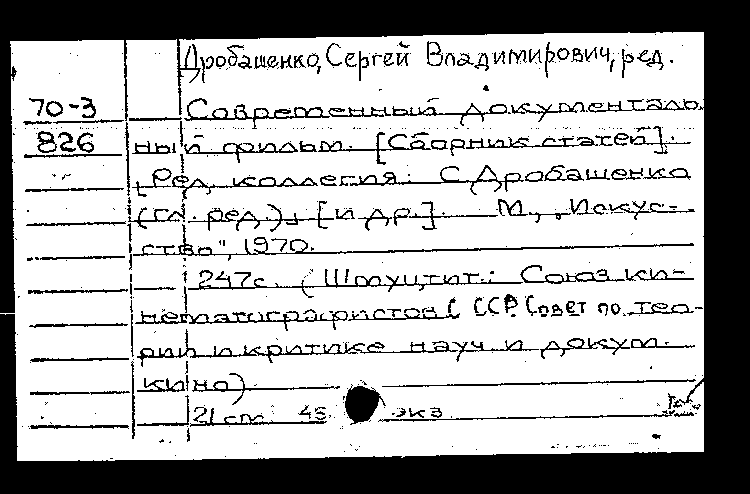 Дробашенко, Сергей Владимирович, ред.
70-3 Современный документаль
826 ный фильм. [Сборник статей].
Ред. коллегия: С. Дробашенко
(гл. ред.) [и др.]. М., „Искус-
ство", 1970.
247с. (Шмуцтит.: Союз ки-
нематографистов СССР. Совет по тео-
рии и критике науч. и докум.
кино)
21 см. 45 экз.